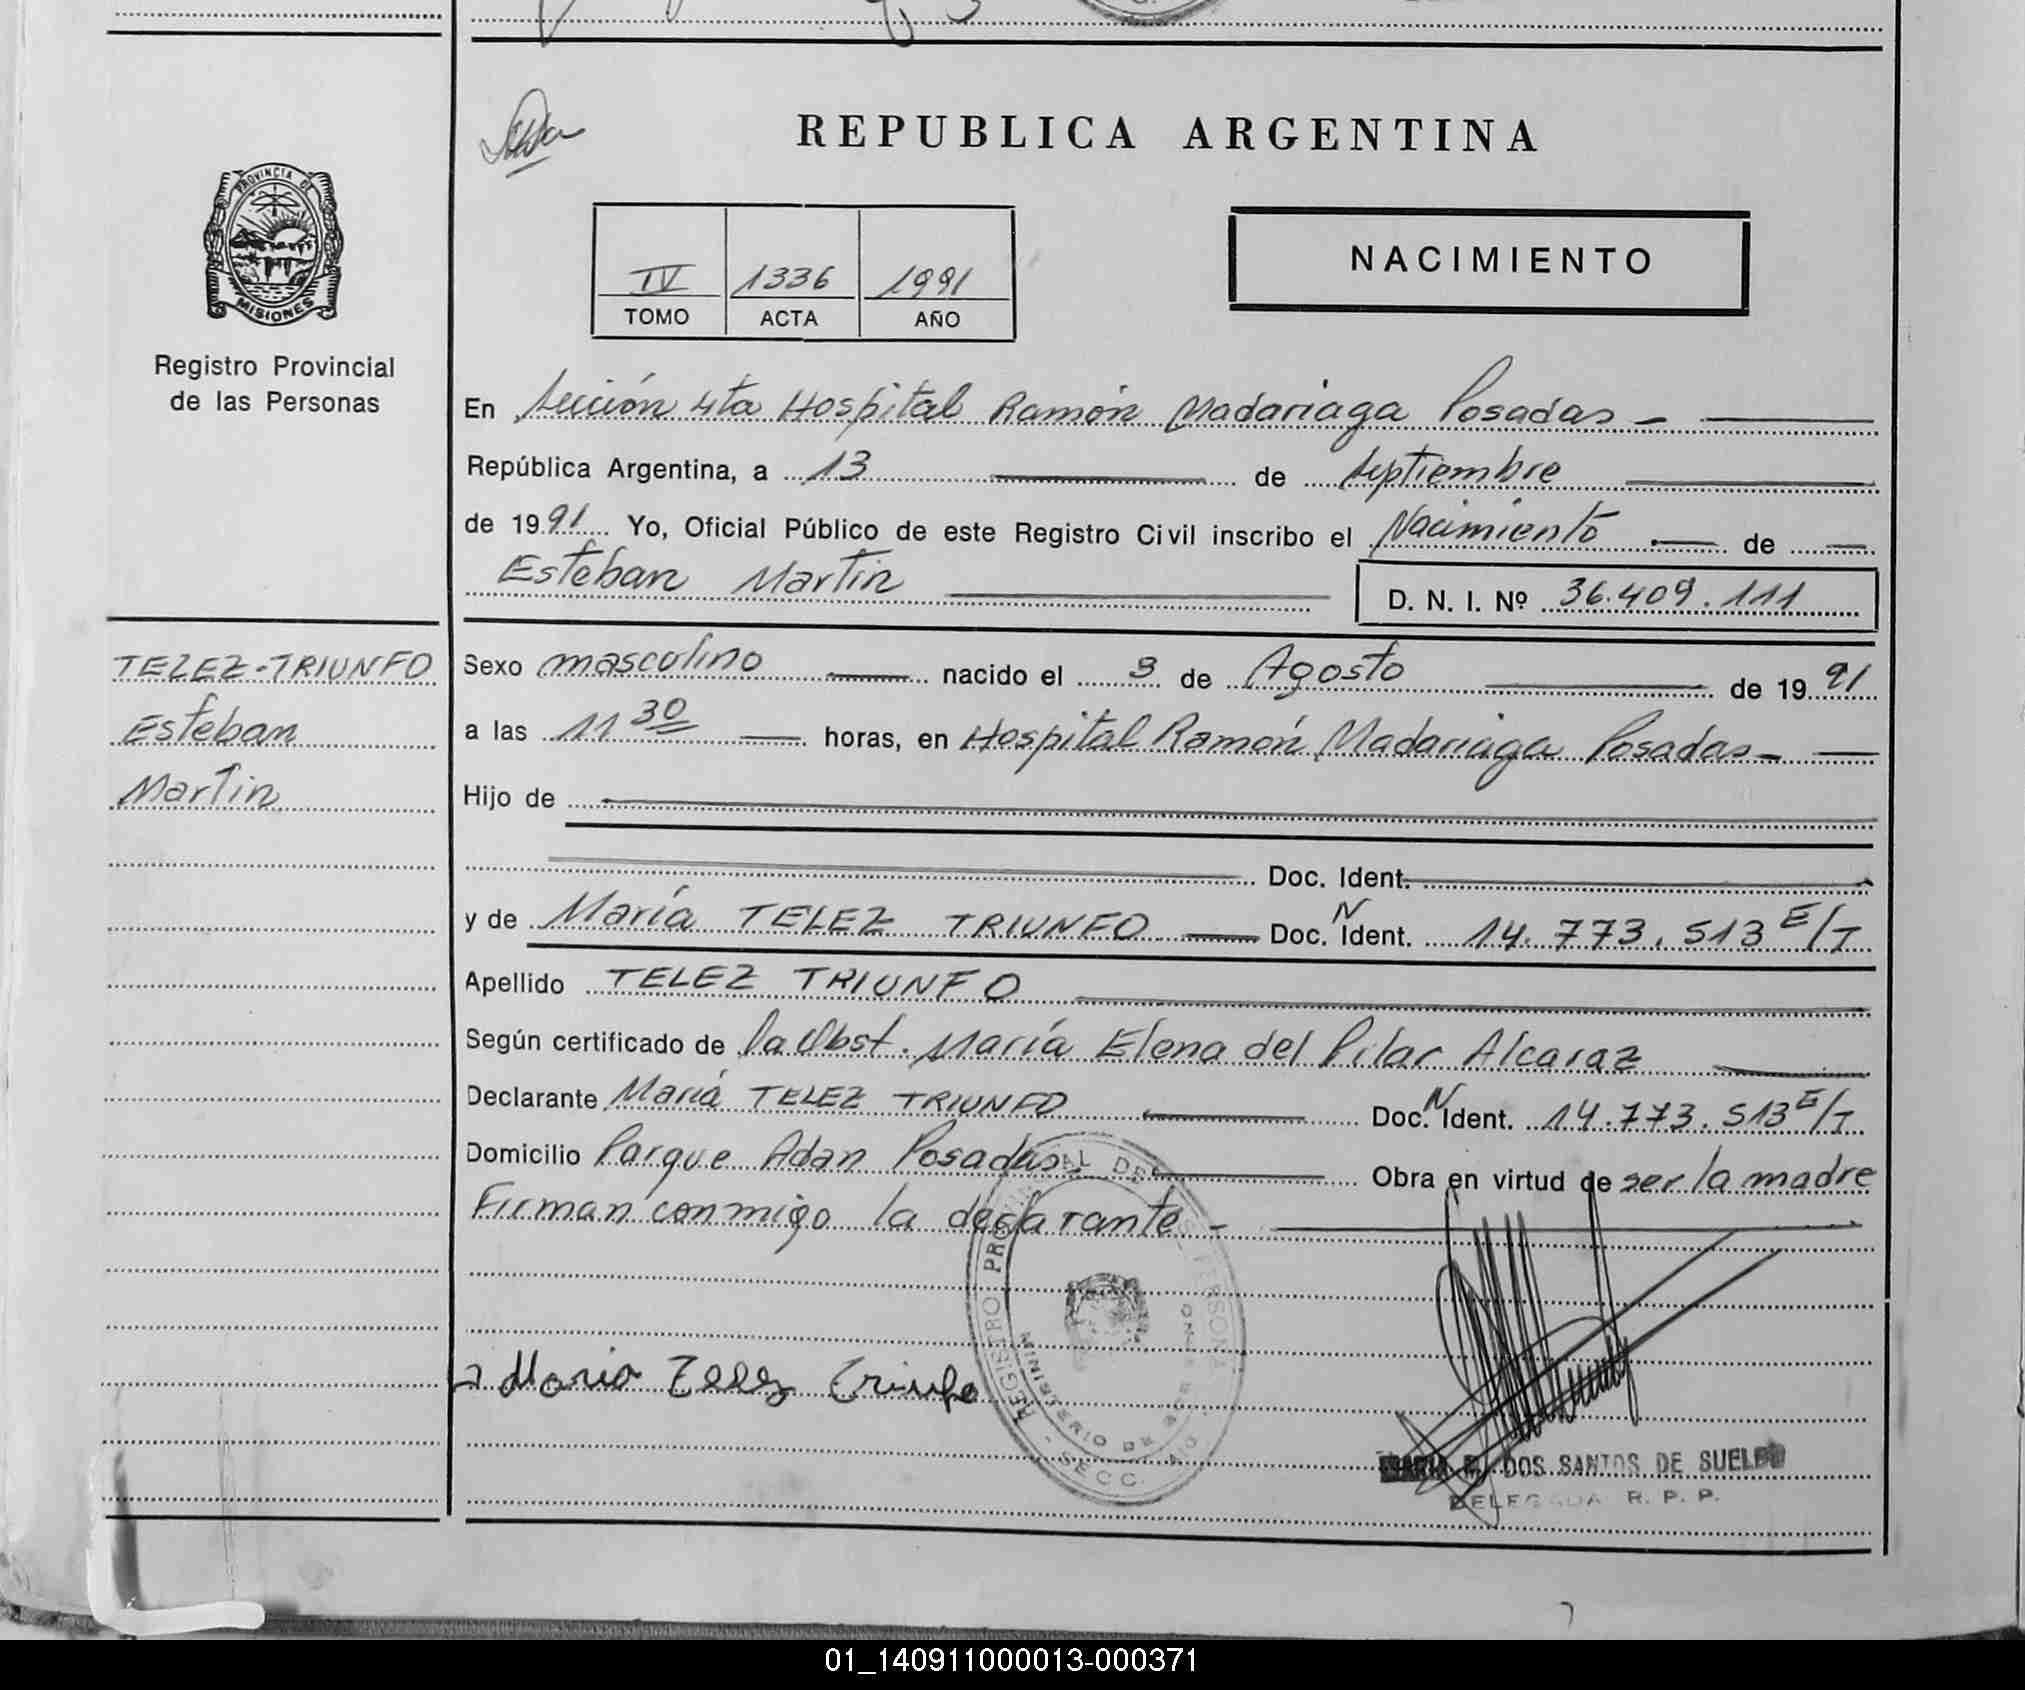 REPUBLICA ARGENTINA
PROVINCIA DE
MISIONES
Registro Provincial
de las Personas
IV 1336 1991
TOMO ACTA AÑO
NACIMIENTO
En Sección 4ta Hospital Ramón Madariaga Posadas -
República Argentina, a 13 de Septiembre
de 1991 Yo, Oficial Público de este Registro Civil inscribo el Nacimiento de
Esteban Martin
D. N. I. Nº 36.409.111
TELEZ-TRIUNFO
Esteban
Martin
Sexo masculino nacido el 3 de Agosto de 1991
a las 11 30 horas, en Hospital Ramón Madariaga Posadas -
Hijo de
Doc. Ident.
y de María TELEZ TRIUNFO Doc. N Ident. 14.773.513 E/T
Apellido TELEZ TRIUNFO
Según certificado de la Obst. María Elena del Pilar Alcaraz
Declarante María TELEZ TRIUNFO Doc. N Ident. 14.773.513 E/T
Domicilio Parque Adan Posadas Obra en virtud de ser la madre
Firman conmigo la declarante -
REGISTRO PROVINCIAL DE PERSONA
MINISTERIO DE
SECC.
Maria Telez Triunfo
MARIA DOS SANTOS DE SUELDO
DELEGADA R. P. P.
01_140911000013-000371